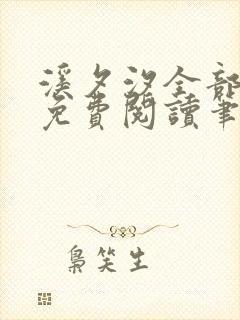 溪夕汐全部
免費閱讀筆
梟笑生